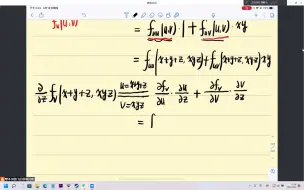 f_v(u,v)
= f_uu(u,v)·1 + f_uv(u,v)·xy
= f_uu(x+y+z, xyz) + f_uv(x+y+z, xyz)xy
∂/∂z f_v(x+y+z, xyz) u=x+y+z v=xyz = ∂f_v/∂u · ∂u/∂z + ∂f_v/∂v · ∂v/∂z
= f